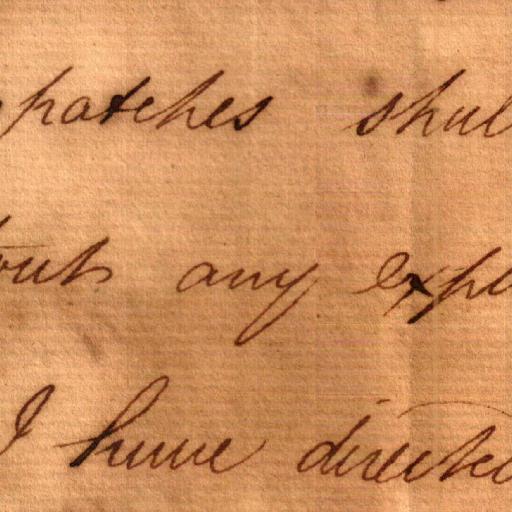 patches shul
out any expl
I have directe